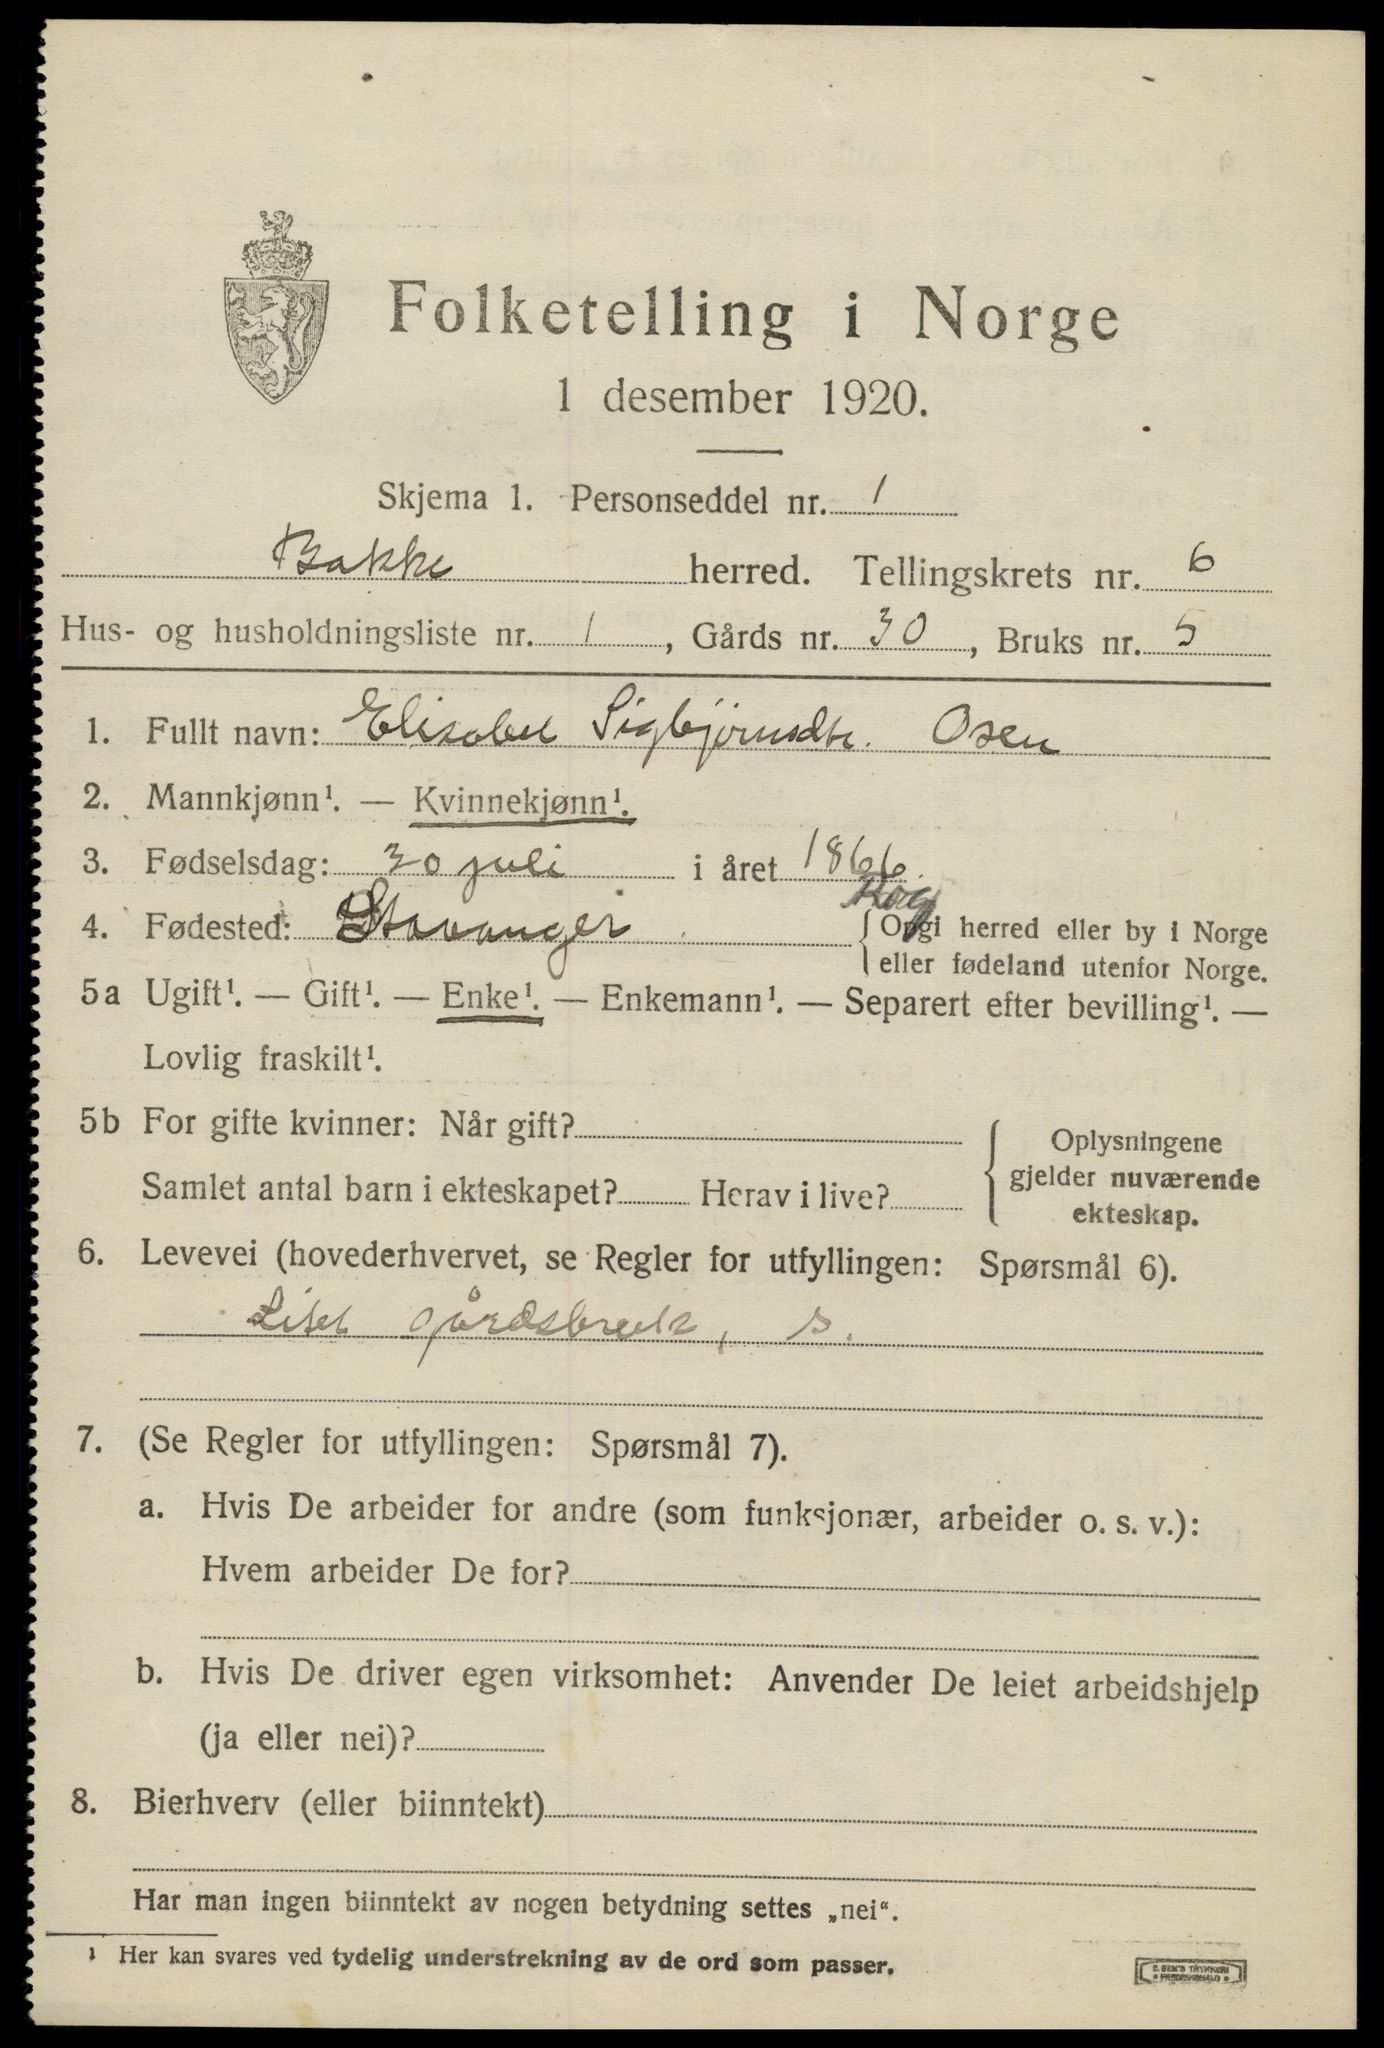 Folketelling i Norge
1 desember 1920.
Skjema 1. Personseddel nr. 1
Bakke herred. Tellingskrets nr. 6
Hus- og husholdningsliste nr. 1, Gårds nr. 30, Bruks nr. 5
1. Fullt navn: Elisabet Sigbjörnsdtr. Osen
2. Mannkjønn¹. — Kvinnekjønn¹.
3. Fødselsdag: 30 juli i året 1866.
Rog
4. Fødested: Stavanger { Opgi herred eller by i Norge
eller fødeland utenfor Norge.
5a Ugift¹. — Gift¹. — Enke¹. — Enkemann¹. — Separert efter bevilling¹. —
Lovlig fraskilt¹.
5b For gifte kvinner: Når gift?
Samlet antal barn i ekteskapet? Herav i live?
Oplysningene
gjelder nuværende
ekteskap.
6. Levevei (hovederhvervet, se Regler for utfyllingen: Spørsmål 6).
Litet gårdsbruk, s.
7. (Se Regler for utfyllingen: Spørsmål 7).
a. Hvis De arbeider for andre (som funksjonær, arbeider o. s. v.):
Hvem arbeider De for?
b. Hvis De driver egen virksomhet: Anvender De leiet arbeidshjelp
(ja eller nei)?
8. Bierhverv (eller biinntekt)
Har man ingen biinntekt av nogen betydning settes „nei“.
¹ Her kan svares ved tydelig understrekning av de ord som passer.
E. SEM'S TRYKKERI
FREDRIKSHALD